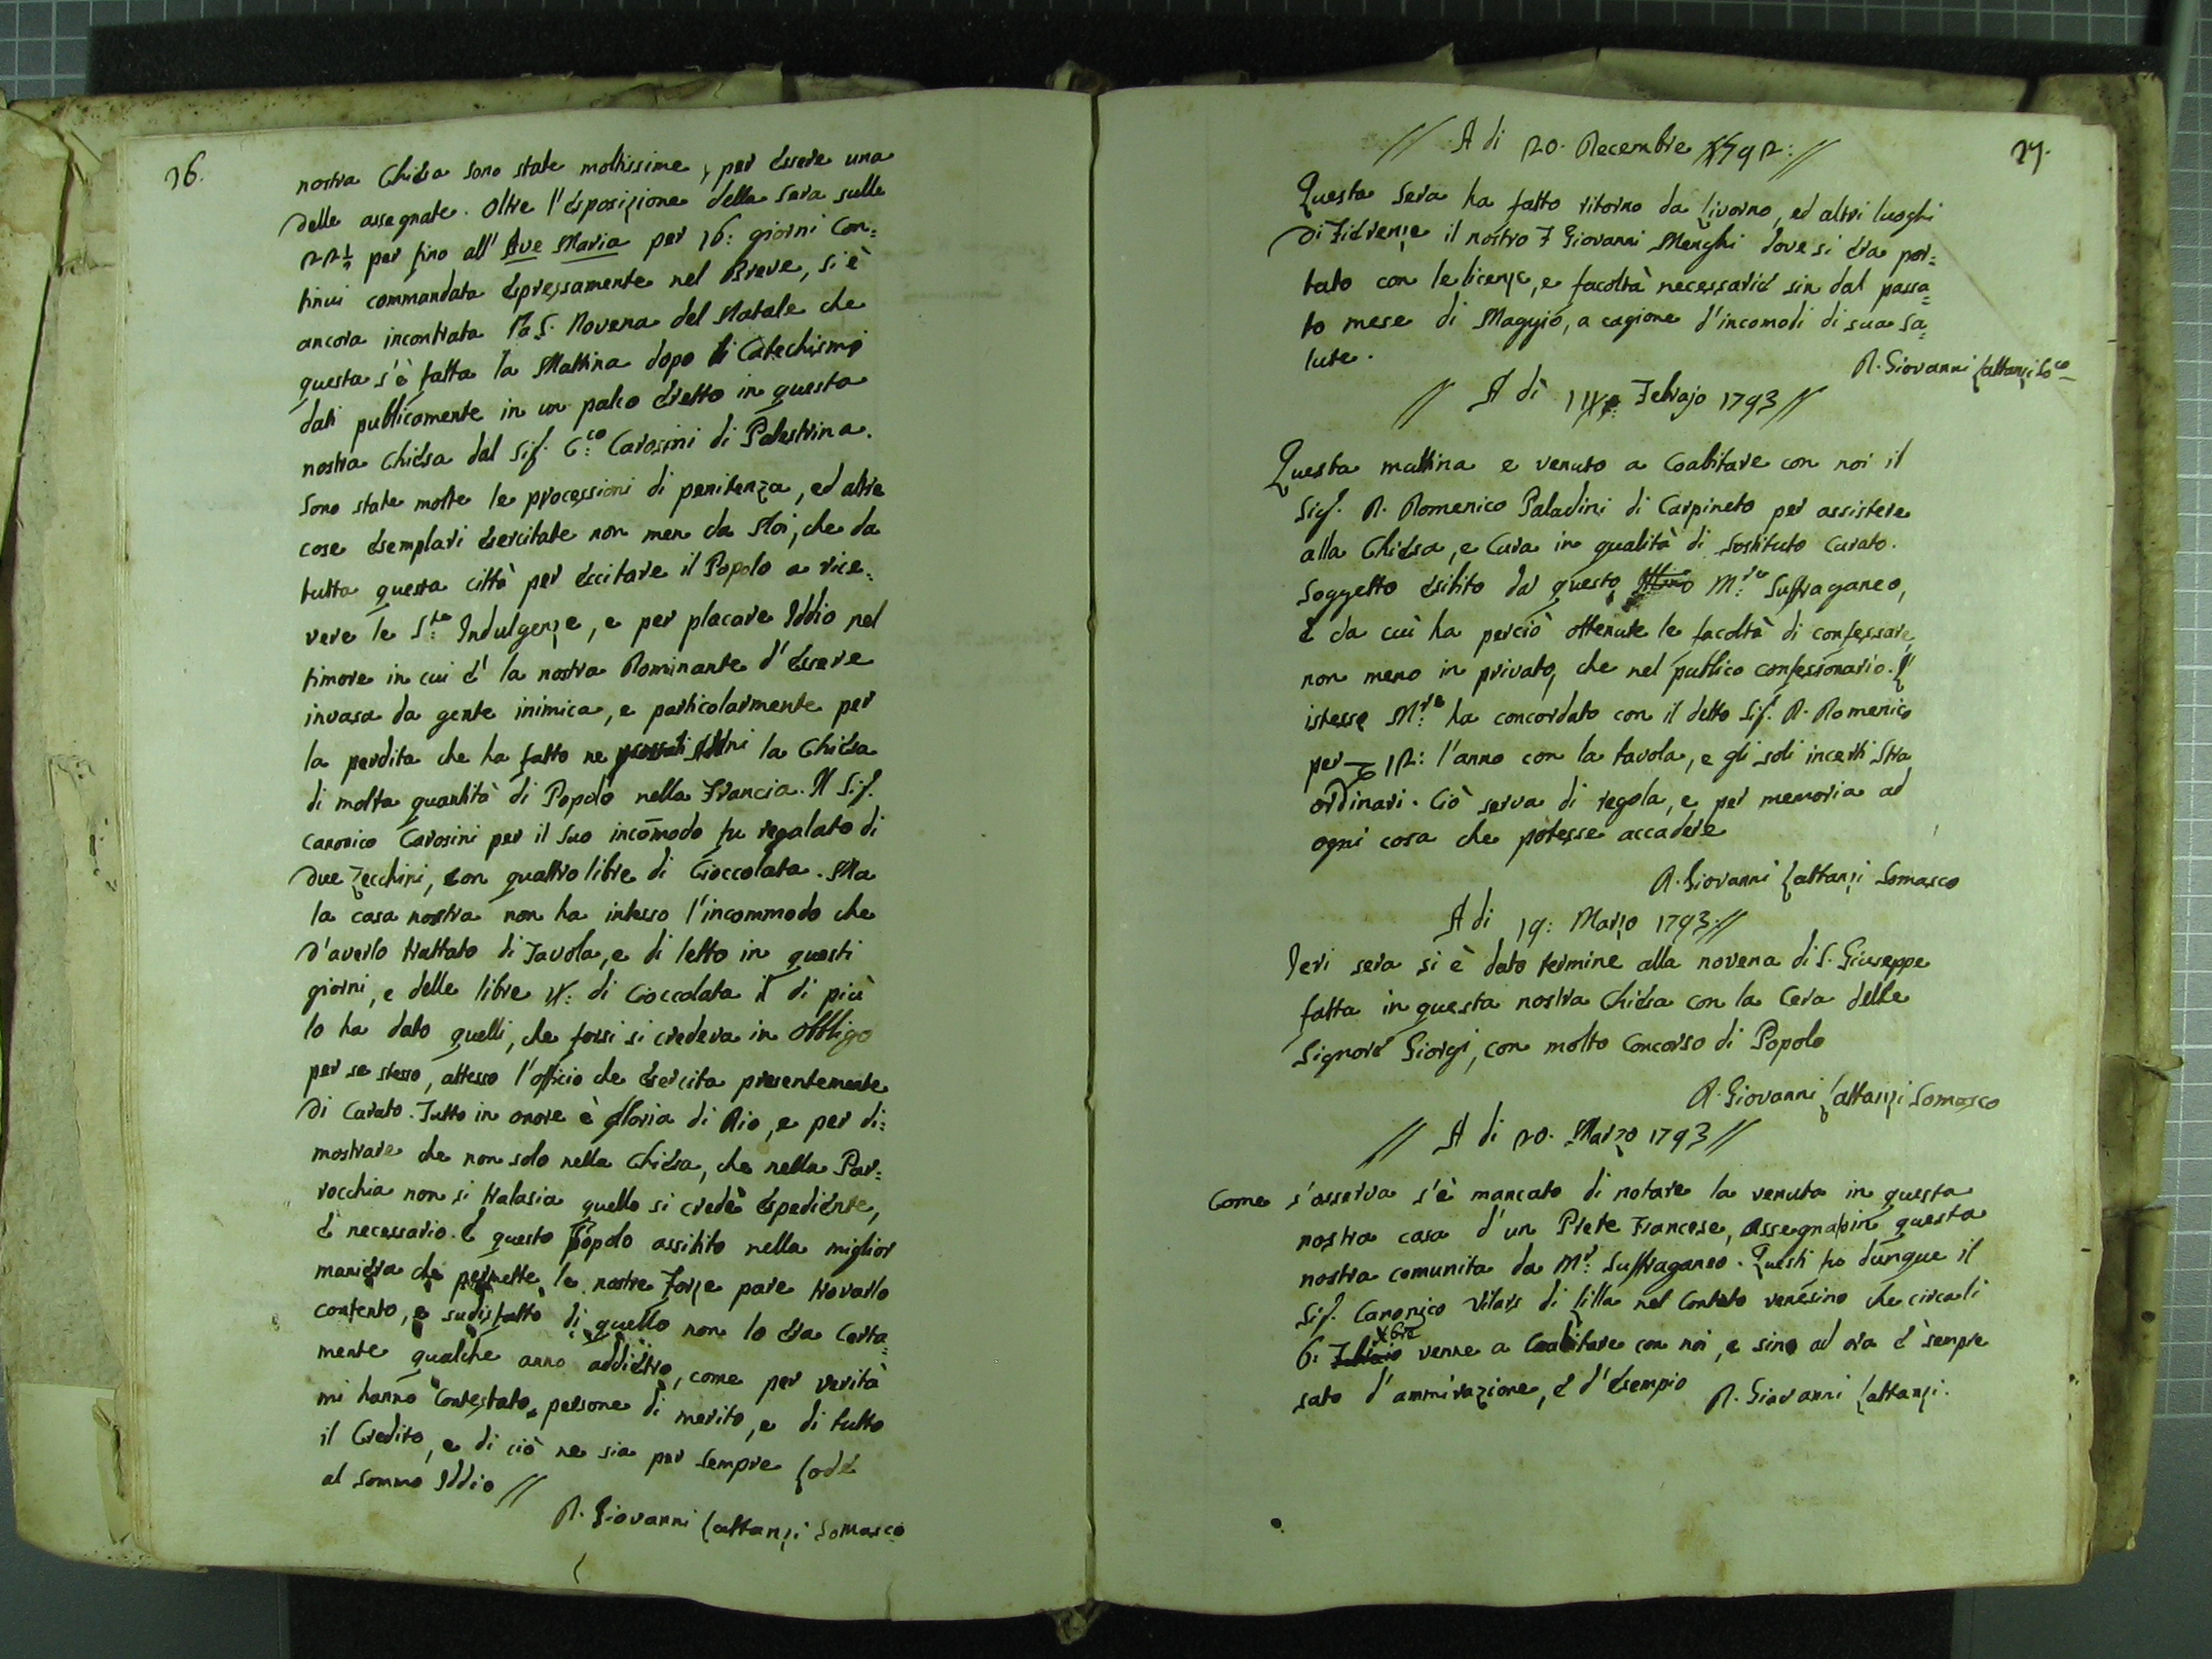 16.
nostra Chiesa sono state moltissime, per essere una
delle assegnate. Oltre l'esposizione della sera sulle
22½ per fino all' Ave Maria per 16: giorni con=
tinui commandata espressamente nel Breve, si è
ancora incontrata la S. Novena del Natale che
questa s'è fatta la Mattina dopo li Catechismi
dati pubblicamente in un palco eretto in questa
nostra Chiesa dal Sig. C:co Carosini di Palestrina.
Sono state molte le processioni di penitenza, ed altre
cose esemplari esercitate non men da Noi, che da
tutta questa città per eccitare il Popolo a rice=
vere le S:te Indulgenze, e per placare Iddio nel
timore in cui è la nostra Dominante d'essere
invasa da gente inimica, e particolarmente per
la perdita che ha fatto ne passati Anni la Chiesa
di molta quantità di Popolo nella Francia. Il Sig.
Canonico Carosini per il suo incōmodo fu regalato di
due Zecchini, con quattro libre di Cioccolata. Ma
la casa nostra non ha inteso l'incommodo che
d'averlo trattato di Tavola, e di letto in questi
giorni, e delle libre 4: di Cioccolata il di più
lo ha dato quelli, che forsi si credeva in obbligo
per se stesso, attesso l'officio che esercita presentemente
di Curato. Tutto in onore è gloria di Dio, e per di=
mostrare che non solo nella Chiesa, che nella Par=
rocchia non si tralasia quello si crede espediente,
è necessario. E questo Popolo assitito nella miglior
maniera che permette le nostre forze pare trovarlo
contento, e sudisfatto di quello non lo era Certa=
mente qualche anno addietro, come per verità
mi hanno Contestato persone di merito, e di tutto
il Credito, e di ciò ne sia per sempre Lode
al Sommo Iddio //
D. Giovanni Lattanzi Somasco
17.
// A di 20. Decembre 1792: //
Questa Sera ha fatto ritorno da Livorno, ed altri luoghi
di Fierenze il nostro F Giovanni Menghi dove si era por=
tato con le licenze, e facoltà necessarie sin dal passa=
to mese di Maggio, a cagione d'incomodi di sua sa=
lute.
D. Giovanni Lattanzi So:co
// A dì Febrajo 1793 //
Questa mattina e venuto a Coabitare con noi il
Sig. D. Domenico Paladini di Carpineto per assistere
alla Chiesa, e Cura in qualità di Sostituto Curato.
Soggetto esibito da questo M:re Suffraganeo,
è da cui ha perciò ottenute le facoltà di confessare
non meno in privato, che nel publico confessonario. L'
istesso M:re ha concordato con il detto Sig. D. Domenico
per 12: l'anno con la tavola, e gli soli incerti Stra
ordinari. Ciò serva di regola, e per memoria ad
ogni cosa che potesse accadere
D. Giovanni Lattanzi Somasco
A di 19: Marzo 1793 //
Ieri sera si è dato termine alla novena di S. Giuseppe
fatta in questa nostra Chiesa con la Cera delle
Signore Giorgi, con molto Concorso di Popolo
D. Giovanni Lattanzi Somasco
// A di 20. Marzo 1793 //
Come s'asserva s'è mancato di notare la venuta in questa
nostra casa d'un Prete Francese, Assegnato in questa
nostra comunita da M:r Suffraganeo. Questi fu dunque il
Sig. Canonico Vilars di Lilla nel Contato venesino che circa li
6: Xbre venne a Coabitare con noi, e sino ad ora è sempre
sato d'ammirazione, è d'esempio D. Giovanni Lattanzi.